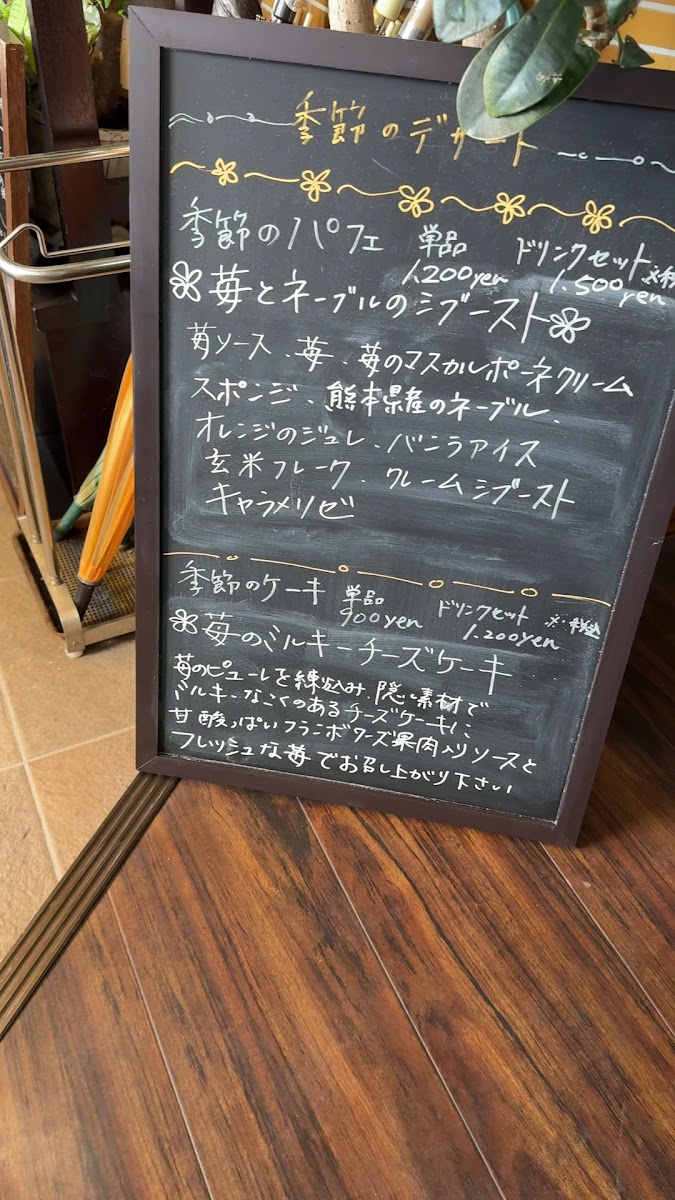 季節のデザート
季節のパフェ 単品 1,200yen ドリンクセット 1,500yen ※税
❀苺とネーブルのシブースト❀
苺ソース、苺、苺のマスカルポーネクリーム
スポンジ、熊本県産のネーブル、
オレンジのジュレ、バニラアイス
玄米フレーク、クレームシブースト
キャラメリゼ
季節のケーキ 単品 900yen ドリンクセット 1,200yen ※税込
❀苺のミルキーチーズケーキ
苺のピューレを練込み、隠し素材で
ミルキーなこくのあるチーズケーキに、
甘酸っぱいフランボワーズ果肉入りソースと
フレッシュな苺でお召し上がり下さい